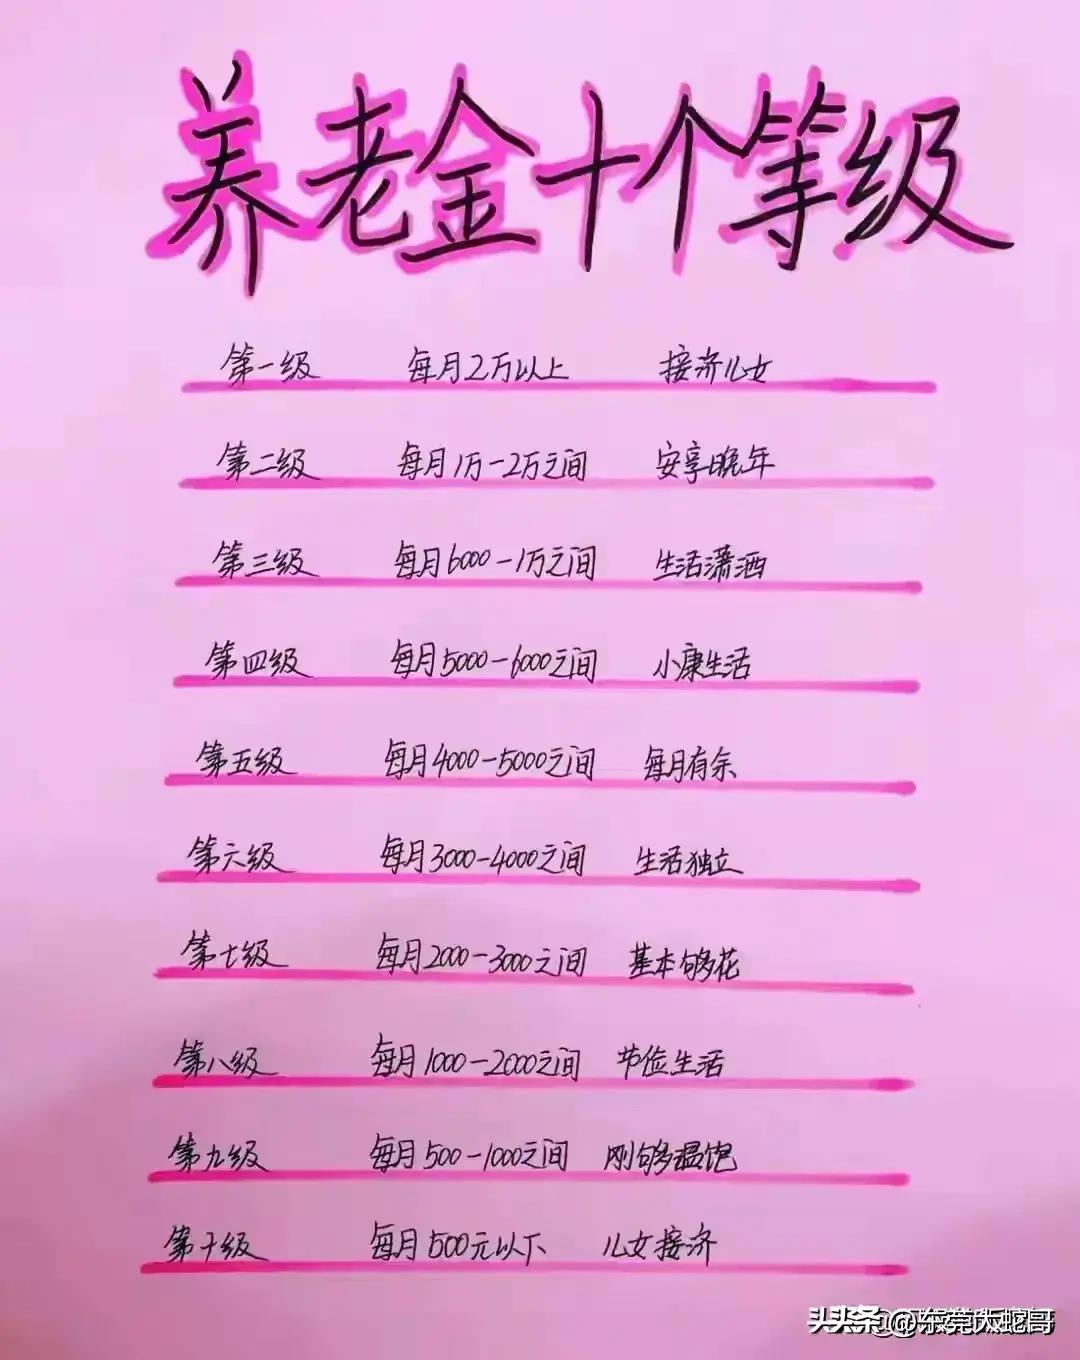 养老金十个等级
第一级 每月2万以上 接济儿女
第二级 每月1万-2万之间 安享晚年
第三级 每月6000-1万之间 生活潇洒
第四级 每月5000-6000之间 小康生活
第五级 每月4000-5000之间 每月有余
第六级 每月3000-4000之间 生活独立
第七级 每月2000-3000之间 基本够花
第八级 每月1000-2000之间 节俭生活
第九级 每月500-1000之间 刚够温饱
第十级 每月500元以下 儿女接济
头条@东莞大蛇哥